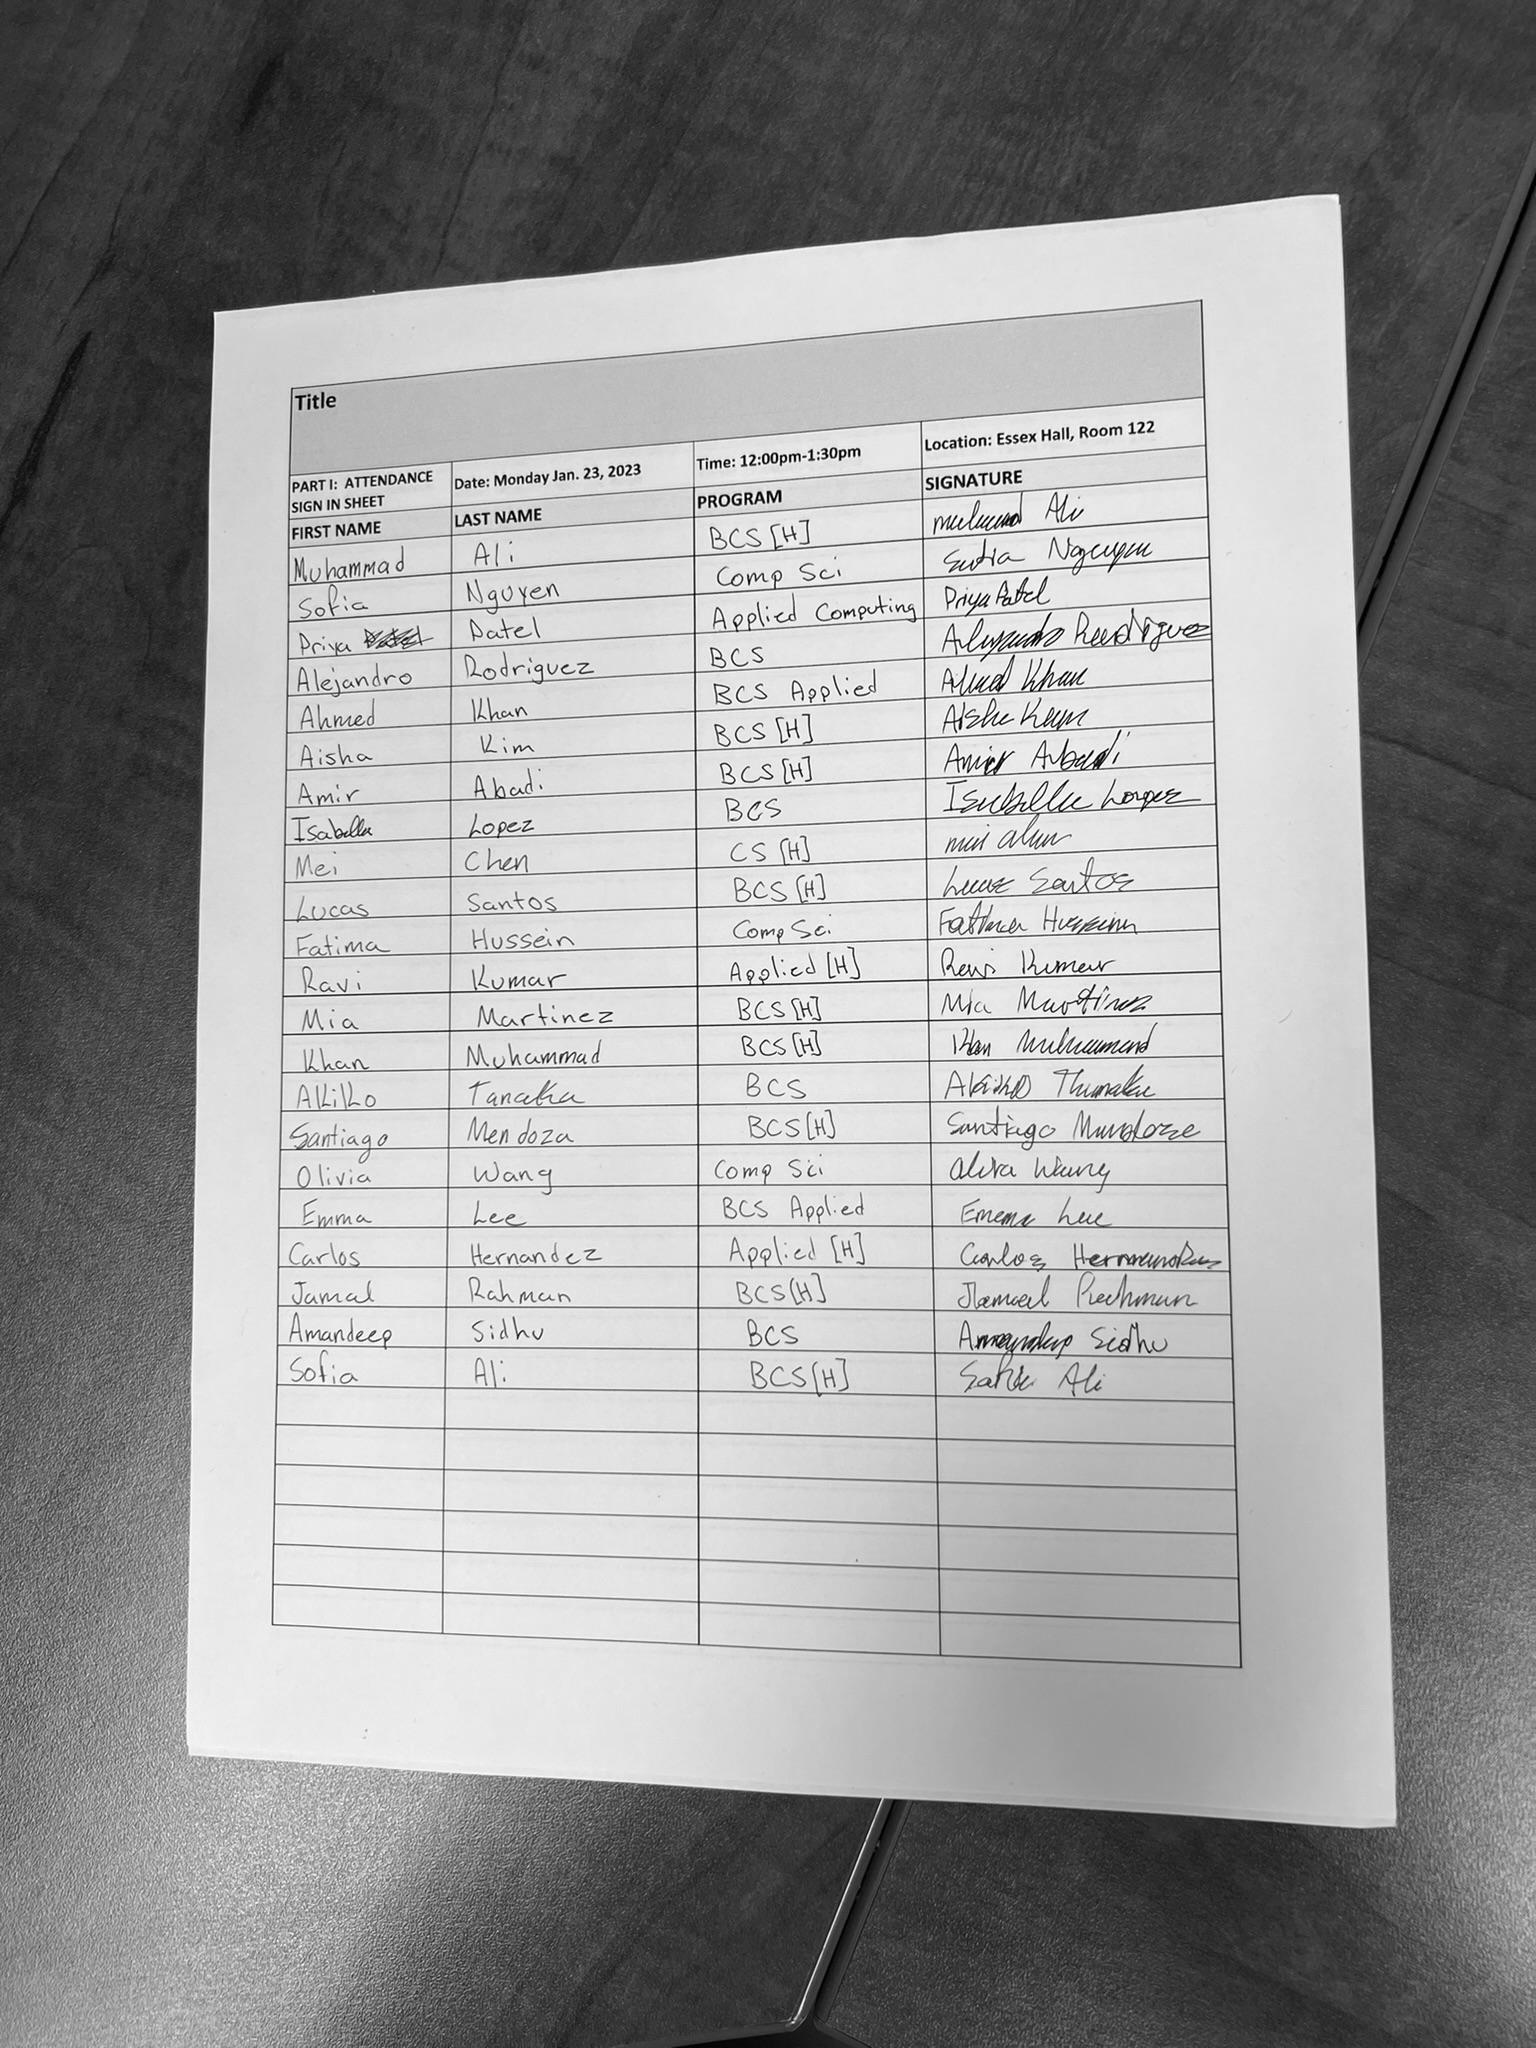 Title
PART I: ATTENDANCE SIGN IN SHEET Date: Monday Jan. 23, 2023 Time: 12:00pm-1:30pm Location: Essex Hall, Room 122
FIRST NAME LAST NAME PROGRAM SIGNATURE
Muhammad Ali BCS [H] Ali
Sofia Nguyen Comp Sci Nguyen
Priya Patel Applied Computing Priya Patel
Alejandro Rodriguez BCS Rodriguez
Ahmed Khan BCS Applied Ahmed Khan
Aisha Kim BCS [H]
Amir Abadi BCS [H] Amir Abadi
Isabella Lopez BCS Isabella Lopez
Mei Chen CS [H]
Lucas Santos BCS [H] Lucas Santos
Fatima Hussein Comp Sci Fatima Hussein
Ravi Kumar Applied [H] Ravi Kumar
Mia Martinez BCS [H] Mia Martinez
Khan Muhammad BCS [H]
Akiko Tanaka BCS Akiko
Santiago Mendoza BCS [H] Santiago
Olivia Wang Comp Sci Wang
Emma Lee BCS Applied Emema Lee
Carlos Hernandez Applied [H] Carlos
Jamal Rahman BCS [H]
Amandeep Sidhu BCS Sidhu
Sofia Ali BCS [H] Ali